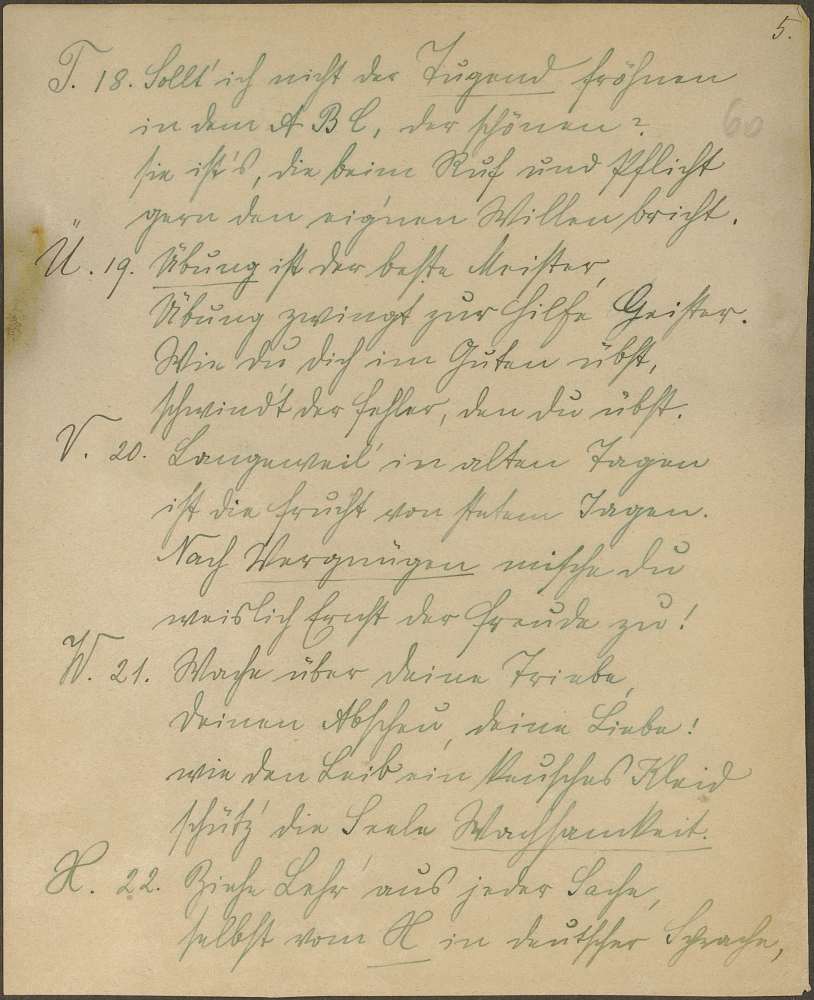 5.
T. 18. Sollt' ich nicht der Tugend fröhnen
60
in dem A B C, der schönen?
sie ist's, die beim Ruf und Pflicht
gern den eig'nen Willen bricht.
Ü. 19. Übung ist der beste Meister,
Übung zwingt zur Hilfe Geister.
Wie du dich im Guten übst,
schwind't der Fehler, den du übst.
V. 20. Langeweil' in alten Tagen
ist die Frucht von stetem Jagen.
Nach Vergnügen mische du
weislich Ernst der Freude zu!
W. 21. Wache über deine Triebe,
deinen Abscheu, deine Liebe!
wie den Leib ein keusches Kleid
schütz' die Seele Wachsamkeit.
X. 22. Ziehe Lehr' aus jeder Sache,
selbst vom X in deutscher Sprache,